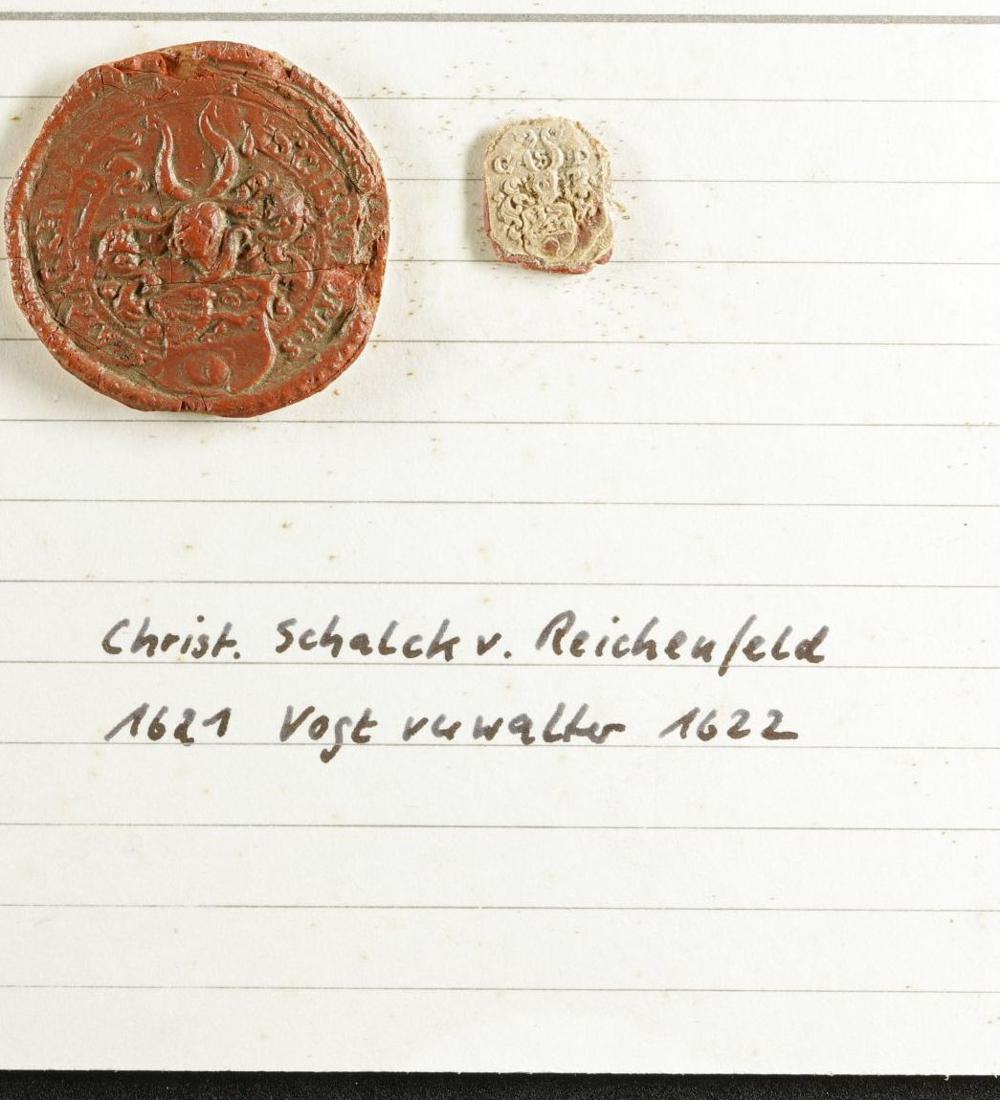 Christ. Schalck v. Reichenfeld
1621 Vogt verwalter 1622